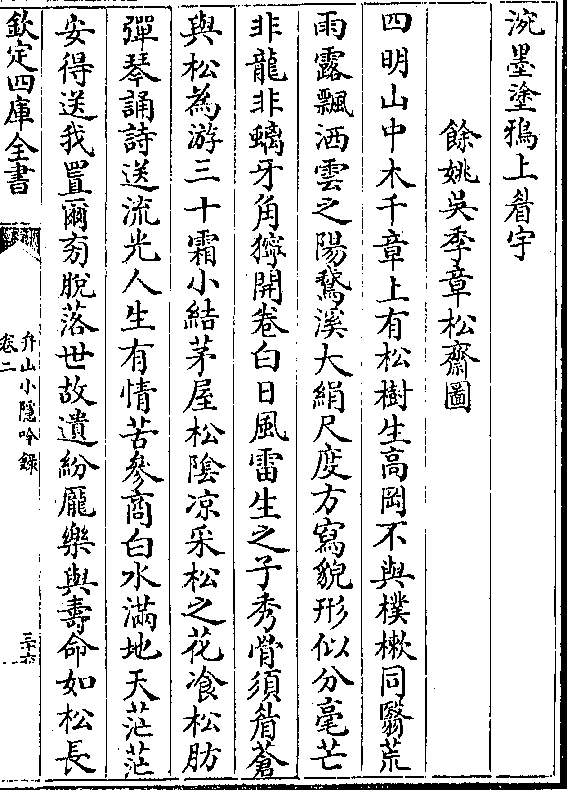 涴墨塗鴉上看宇
餘姚吳季章松齋圖
四明山中木千章上有松樹生高岡不與樸樕同翳荒
雨露飄洒雲之陽鵞溪大絹尺度方寫貌形似分毫芒
非龍非螭牙角獰開卷白日風雷生之子秀骨須眉蒼
與松為游三十霜小結茅屋松陰凉采松之花飡松肪
彈琴誦詩送流光人生有情苦參商白水滿地天茫茫
安得送我置爾旁脫落世故遺紛厖樂與壽命如松長
欽定四庫全書
丹山小隱吟錄
卷二
三十六